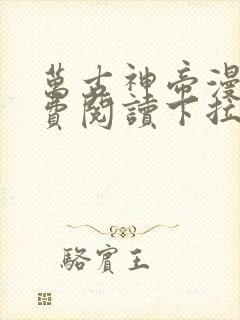 萬古神帝漫
費閱讀下拉
駱賓王